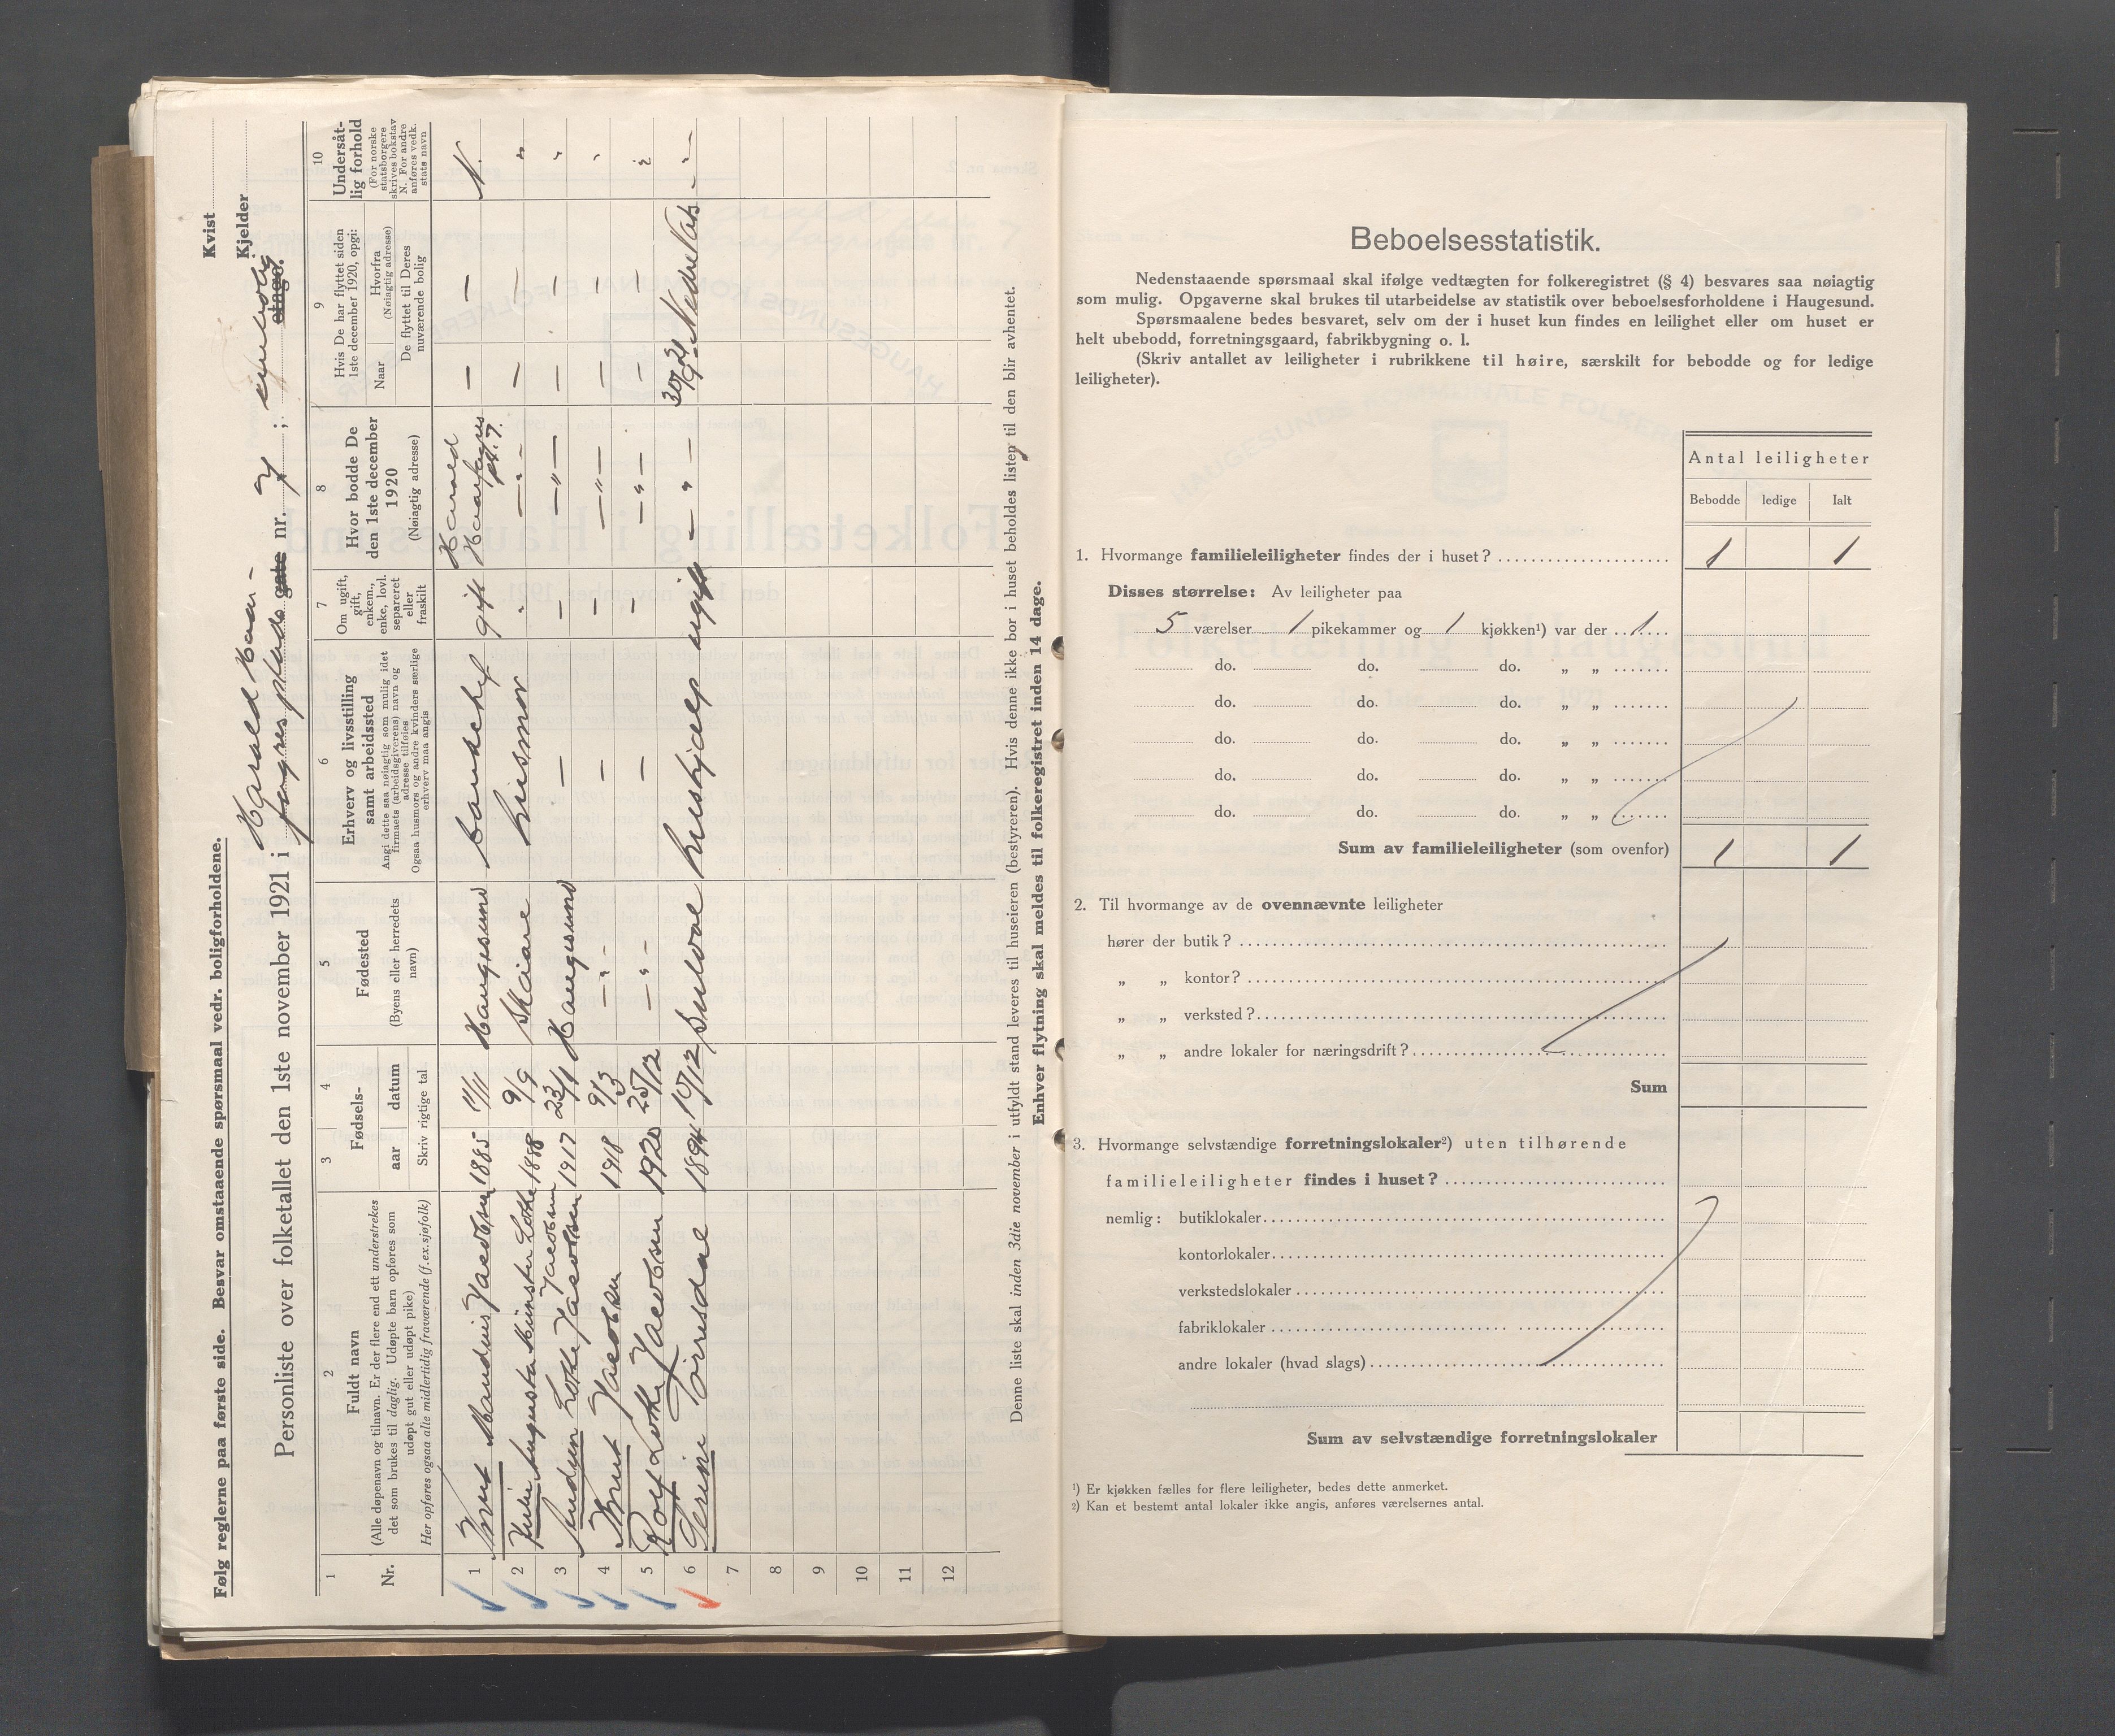 Følg reglerne paa første side. Besvar omstaaende spørsmaal vedr. boligforholdene.
Kvist
Kjelder
Personliste over folketallet den 1ste november 1921 i Harald Haar-
fagres plads gate nr. 7; enebolig etage.
1 2 3 4 5 6 7 8 9 10
Nr.
Fuldt navn
(Alle døpenavn og tilnavn. Er der flere end ett understrekes
det som brukes til daglig. Udøpte barn opføres som
udøpt gut eller udøpt pike)
Her opføres ogsaa alle midlertidig fraværende (f. ex. sjøfolk)
Fødsels-
aar datum
Skriv rigtige tal
Fødested
(Byens eller herredets
navn)
Erhverv og livsstilling
samt arbeidssted
Angi dette saa nøiagtig som mulig idet
firmaets (arbeidsgiverens) navn og
adresse tilføies
Ogsaa husmors og andre kvinders særlige
erhverv maa angis
Om ugift,
gift,
enkem.,
enke, lovl.
separeret
eller
fraskilt
Hvor bodde De
den 1ste december
1920
(Nøiagtig adresse)
Hvis De har flyttet siden
1ste december 1920, opgi:
Naar
Hvorfra
(Nøiagtig adresse)
De flyttet til Deres
nuværende bolig
Undersåt-
lig forhold
(For norske
statsborgere
skrives bokstav
N. For andre
anføres vedk.
stats navn
1 Knut Mandius Jacobsen 1885 11/11 Haugesund bankchef gift Harald Haarfagres pl. 7. — — N.
2 Julie Augusta Minster Lothe Jacobsen 1888 9/9 Skaare husmor " — " — — — "
3 Andreas Lothe Jacobsen 1917 23/1 Haugesund — — — " — — — "
4 Knut Jacobsen 1918 9/3 — " — — — — " — — — "
5 Rolf Lothe Jacobsen 1920 25/12 — " — — — — " — — — "
6 Serine Torrisdal 1894 10/12 Suldal hushjælp ugift — " — 30/9 21 Nedre Vats — " —
7
8
9
10
11
12
Denne liste skal inden 3die november i utfyldt stand leveres til huseieren (bestyreren). Hvis denne ikke bor i huset beholdes listen til den blir avhentet.
Enhver flytning skal meldes til folkeregistret inden 14 dage.
Beboelsesstatistik.
Nedenstaaende spørsmaal skal ifølge vedtægten for folkeregistret (§ 4) besvares saa nøiagtig
som mulig. Opgaverne skal brukes til utarbeidelse av statistik over beboelsesforholdene i Haugesund.
Spørsmaalene bedes besvaret, selv om der i huset kun findes en leilighet eller om huset er
helt ubebodd, forretningsgaard, fabrikbygning o. l.
(Skriv antallet av leiligheter i rubrikkene til høire, særskilt for bebodde og for ledige
leiligheter).
Antal leiligheter
Bebodde ledige Ialt
1. Hvormange familieleiligheter findes der i huset? 1 1
Disses størrelse: Av leiligheter paa
5 værelser 1 pikekammer og 1 kjøkken¹) var der 1
do. do. do. „ „
do. do. do. „ „
do. do. do. „ „
do. do. do. „ „
do. do. do. „ „
Sum av familieleiligheter (som ovenfor) 1 1
2. Til hvormange av de ovennævnte leiligheter
hører der butik?
„ „ kontor?
„ „ verksted?
„ „ andre lokaler for næringsdrift?
Sum
3. Hvormange selvstændige forretningslokaler²) uten tilhørende
familieleiligheter findes i huset?
nemlig: butiklokaler
kontorlokaler
verkstedslokaler
fabriklokaler
andre lokaler (hvad slags)
Sum av selvstændige forretningslokaler
¹) Er kjøkken fælles for flere leiligheter, bedes dette anmerket.
²) Kan et bestemt antal lokaler ikke angis, anføres værelsernes antal.